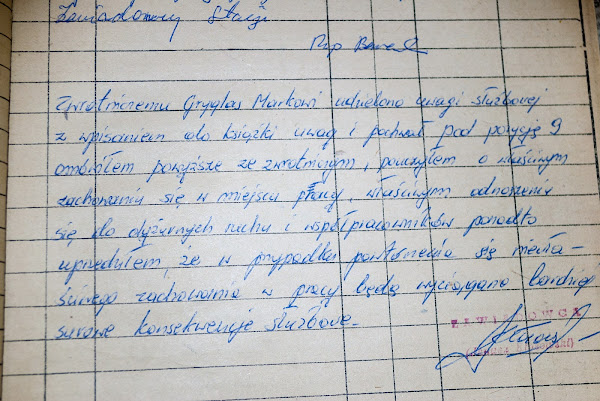 Zawiadomiony Staży
Zwrotniczemu Gryglas Markowi udzielono uwagi służbowej
z wpisaniem do książki uwag i pochwał pod pozycją 9
omówiłem powyższe ze zwrotniczym, pouczyłem o właściwym
zachowaniu się w miejscu pracy, właściwym odnoszeniu
się do dyżurnych ruchu i współpracowników ponadto
uprzedziłem, że w przypadku powtórzenia się niewła-
ściwego zachowania w pracy będą wyciągane bardziej
surowe konsekwencje służbowe.
ZAWIADOWCA